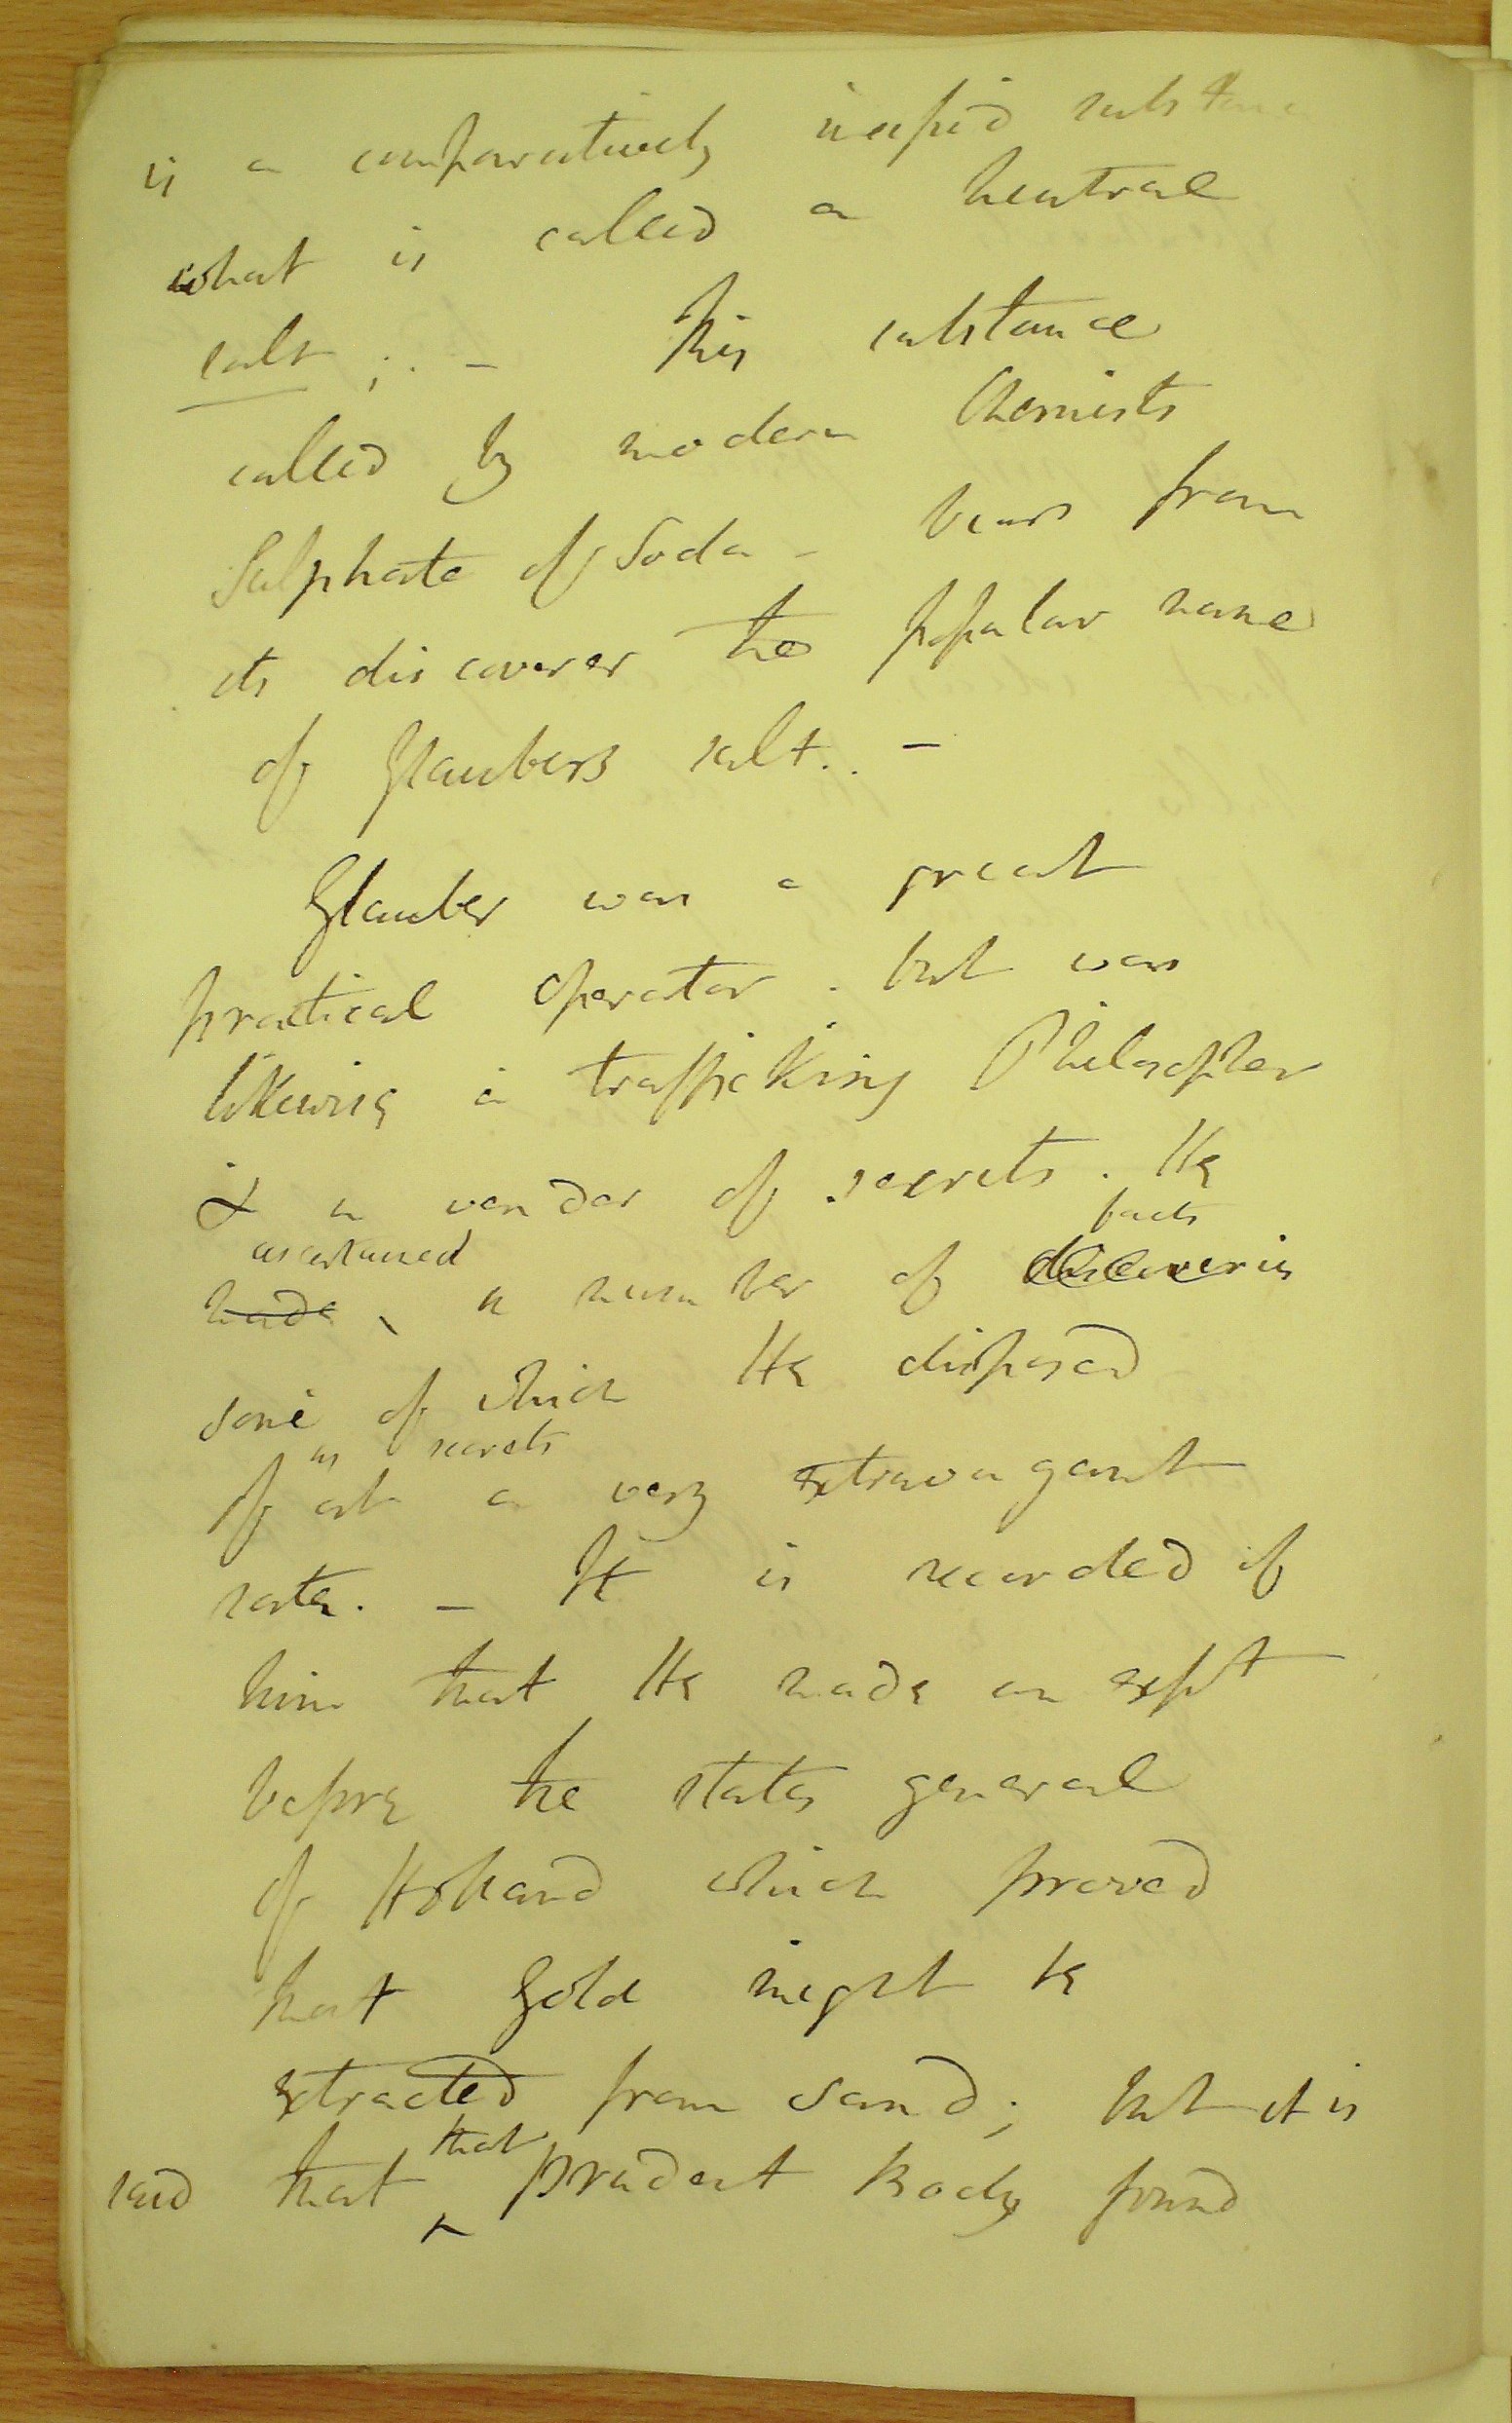 is a comparatively insipid substance
what is called a neutral
salt ;. - This substance
called by modern Chemists
Sulphate of Soda - bears from
its discoverer the popular name
of Glaubers salt.. -
Glauber was a great
practical operator . but was
likewise a trafficking Philosopher
& a vender of secrets . He
ascertained facts
made a number of discoveries
some of which He disposed
as secrets
of at a very extravagant
rate. - It is recorded of
him that He made an expt
before the states general
of Holland which proved
that Gold might be
extracted from sand ; but it is
that
said that prudent Body found